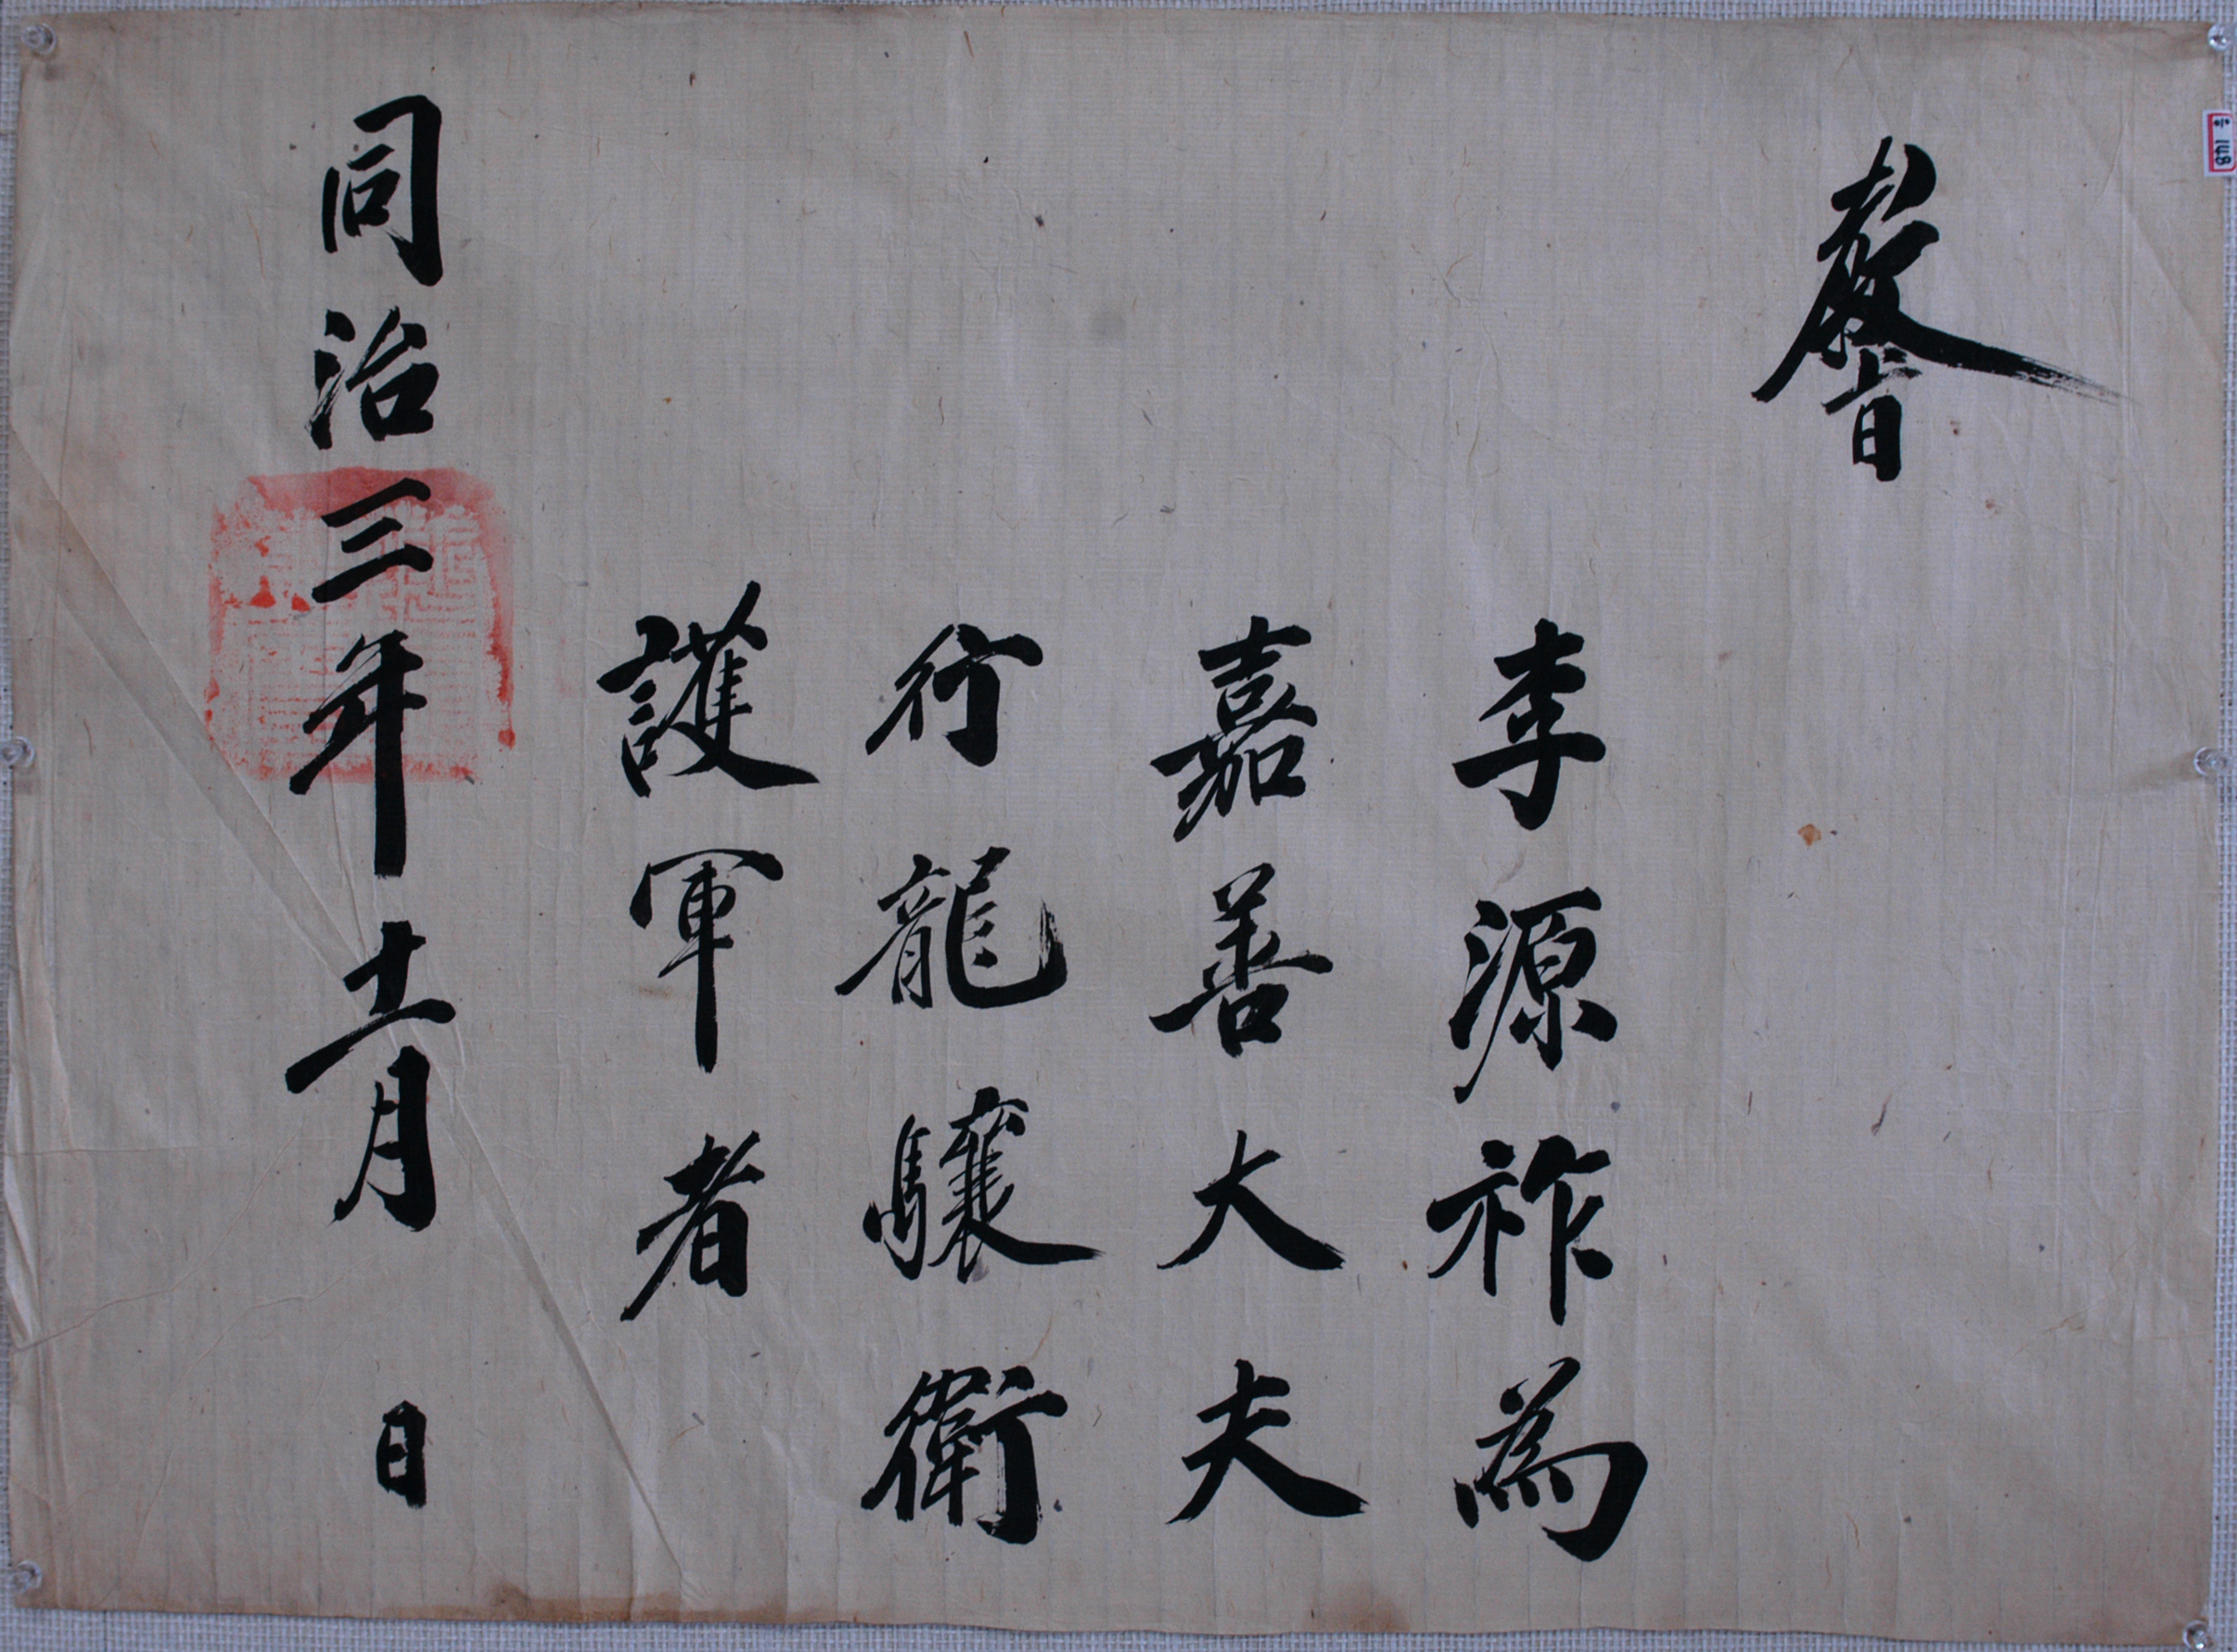 敎旨
李源祚為
嘉善大夫
行龍驤衛
護軍者
同治三年十二月 日
148